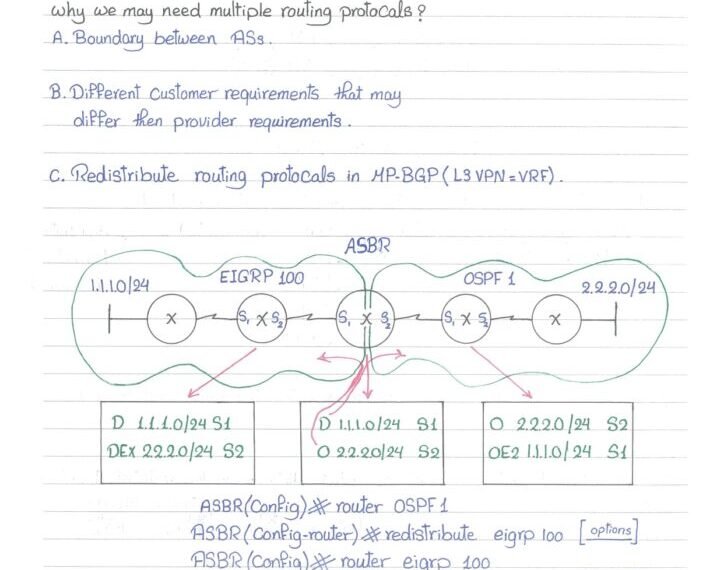 why we may need multiple routing protocals?
A. Boundary between ASs.
B. Different Customer requirements that may
differ then provider requirements.
C. Redistribute routing protocals in MP-BGP (L3 VPN=VRF).
ASBR
EIGRP 100
OSPF 1
1.1.1.0/24
2.2.2.0/24
X
S1 X S2
S1 X S2
S1 X S2
X
D 1.1.1.0/24 S1
DEX 2.2.2.0/24 S2
D 1.1.1.0/24 S1
O 2.2.2.0/24 S2
O 2.2.2.0/24 S2
OE2 1.1.1.0/24 S1
ASBR(Config)# router OSPF 1
ASBR(Config-router)# redistribute eigrp 100 [options]
ASBR(Config)# router eigrp 100